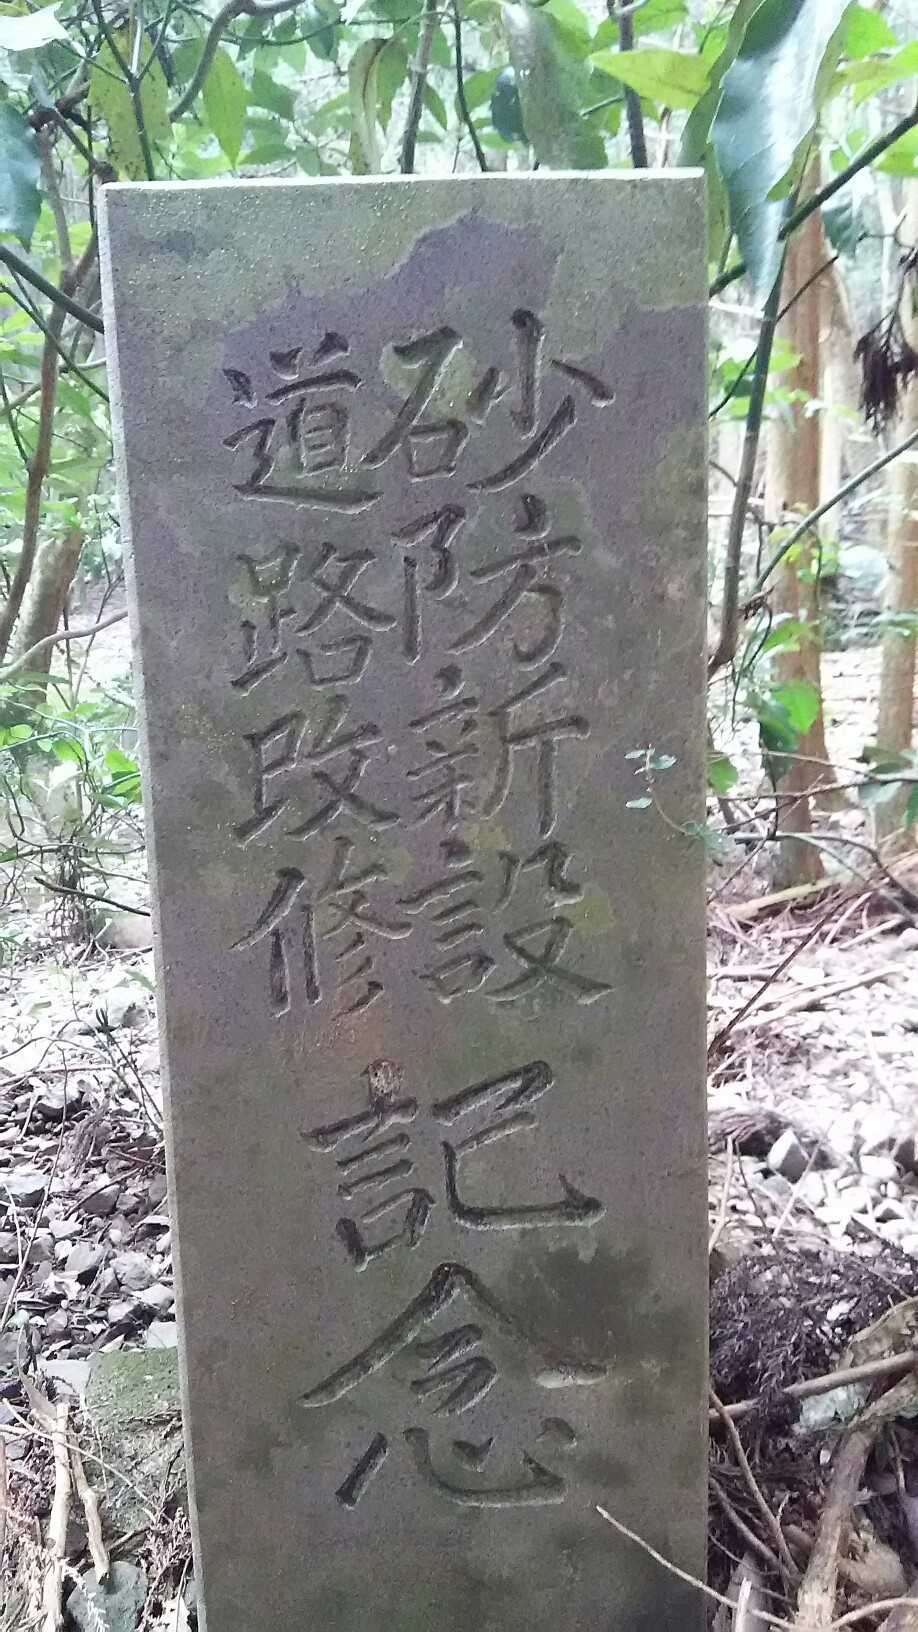 砂防新設
道路改修
記念